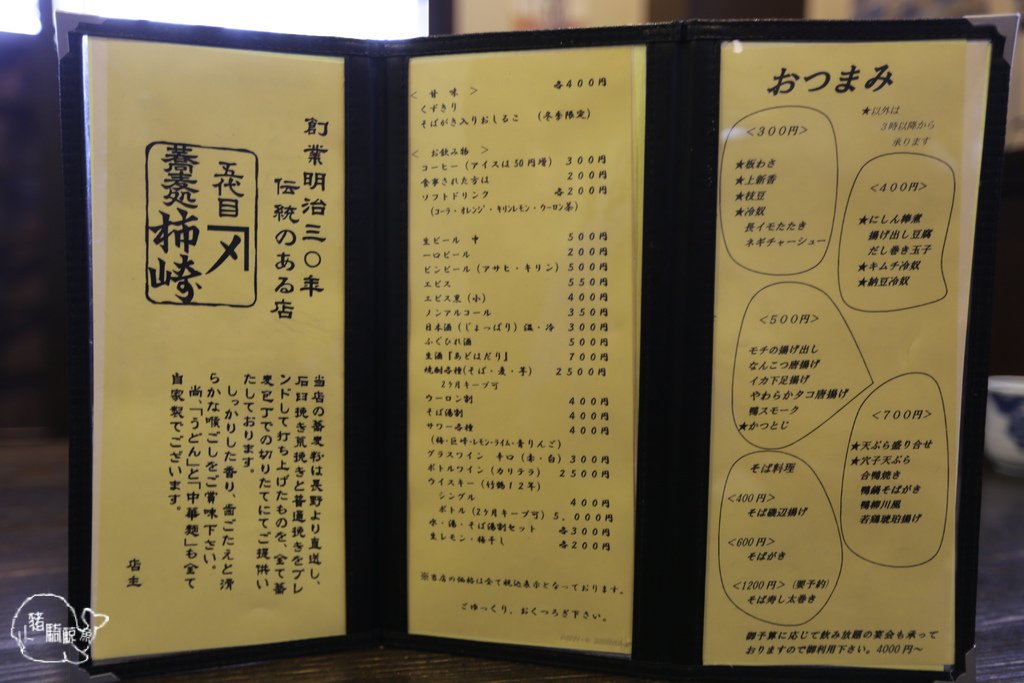 創業明治三〇年
伝統のある店
五代目
蕎麦処
柿崎
当店の蕎麦粉は長野より直送し、
石臼挽き荒挽きと普通挽きをブレ
ンドして打ち上げたものを、全て蕎
麦包丁での切りたてにてご提供い
たしております。
しっかりした香り、歯ごたえと滑
らかな喉ごしをご賞味下さい。
尚、「うどん」と「中華麺」も全て
自家製でございます。
店主
＜ 甘 味 ＞ 各400円
くずきり
そばがき入りおしるこ （冬季限定）
＜ お飲み物 ＞
コーヒー（アイスは50円増） 300円
食事された方は 200円
ソフトドリンク 各200円
（コーラ・オレンジ・キリンレモン・ウーロン茶）
生ビール 中 500円
一口ビール 200円
ビンビール（アサヒ・キリン） 500円
エビス 550円
エビス黒（小） 400円
ノンアルコール 350円
日本酒（じょっぱり）温・冷 300円
ふぐひれ酒 500円
生酒『あどはだり』 700円
焼酎各種（そば・麦・芋） 2500円
2ケ月キープ可
ウーロン割 400円
そば湯割 400円
サワー各種 400円
（梅・巨峰・レモン・ライム・青りんご）
グラスワイン 辛口（赤・白） 300円
ボトルワイン（カリテラ） 2500円
ウイスキー（竹鶴12年）
シングル 400円
ボトル（2ケ月キープ可） 5，000円
水・湯・そば湯割セット 各300円
生レモン・梅干し 各200円
※当店の価格は全て税込表示となっております。
ごゆっくり、おくつろぎ下さい。
おつまみ
★以外は
3時以降から
承ります
＜300円＞
★板わさ
★上新香
★枝豆
★冷奴
長イモたたき
ネギチャーシュー
＜400円＞
★にしん棒煮
揚げ出し豆腐
だし巻き玉子
★キムチ冷奴
★納豆冷奴
＜500円＞
モチの揚げ出し
なんこつ唐揚げ
イカ下足揚げ
やわらかタコ唐揚げ
鴨スモーク
★かつとじ
＜700円＞
★天ぷら盛り合せ
★穴子天ぷら
合鴨焼き
鴨鍋そばがき
鴨柳川風
若鶏琥珀揚げ
そば料理
＜400円＞
そば磯辺揚げ
＜600円＞
そばがき
＜1200円＞（要予約）
そば寿し太巻き
御予算に応じて飲み放題の宴会も承って
おりますので御利用下さい。4000円～
豬騎鯨魚